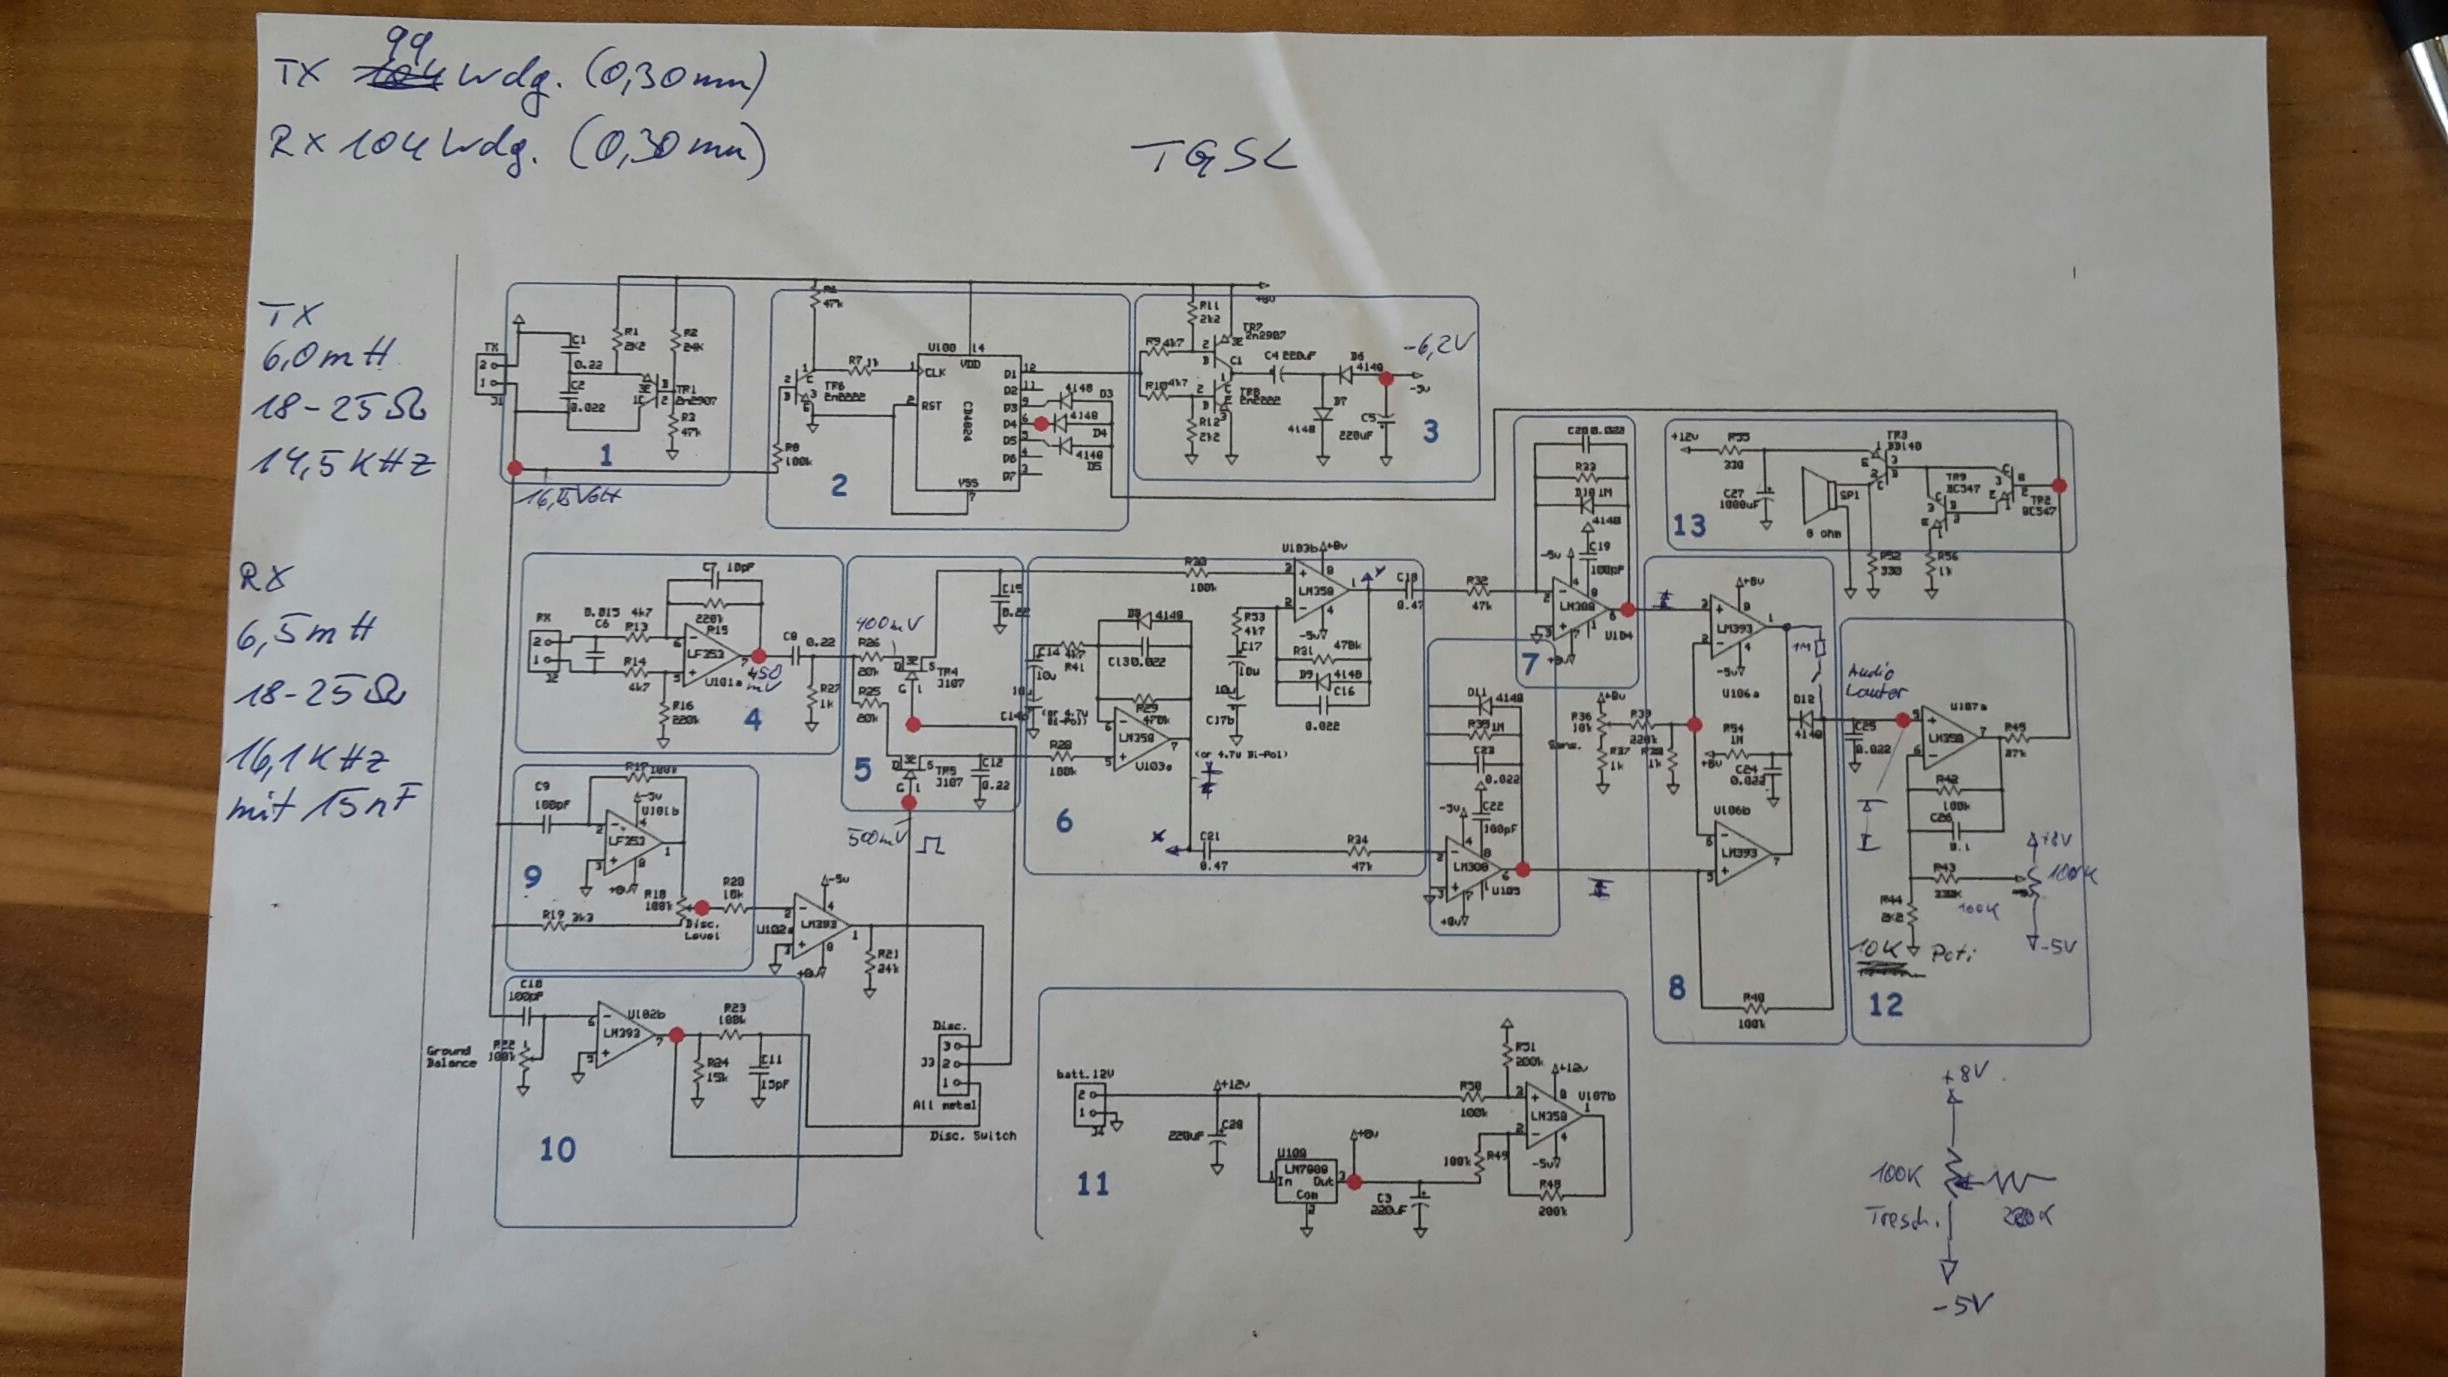 99
TX 104 Wdg. (0,30mm)
RX 104 Wdg. (0,30mm)
TGSL
TX
6,0mH
18-25Ω
14,5KHz
RX
6,5mH
18-25Ω
16,1KHz
mit 15nF
TX
2
1
J1
C1
0.22
C2
0.022
R1
2K2
R2
24K
TR1
2n2907
R3
47k
1
16,5Volt
47k
R7 1k
R8
100k
TR6
2n2222
U100
14
VDD
CLK
RST
CD4024
VSS
7
D1 12
D2 11
D3 9
D4 6
D5 5
D6 4
D7 3
4148 D3
4148
D4
4148
D5
2
R9 4k7
R10 4k7
R11
2k2
R12
2k2
TR7
2n2907
TR8
2n2222
+8v
C4 220uF
D6
4148
D7
4148
C5
220uF
-6,2V
-5v
3
RX
2
1
J2
0.015
C6
4k7
R13
R14
4k7
C7 10pF
220k
R15
LF353
U101a
R16
220k
450
mV
C8 0.22
R27
1k
4
400mV
R26
20k
R25
20k
TR4
J107
TR5
J107
C15
C12
0.22
5
500mV
R30
100k
R28
100k
C14 4k7
R41
10u
(or 4.7u
Bi-Pol)
D8 4148
C13 0.022
R29
470k
LM358
U103a
U103b +8v
LM358
-5v
R53
4k7
C17
10u
10u
C17b
(or 4.7u Bi-Pol)
R31 470k
D9 4148
C16
0.022
Y
X
C18
0.47
C21
0.47
R32
47k
R34
47k
6
C20 0.022
R33
D10 1M
4148
-5v
C19
100pF
LM308
U104
+8v
7
D11 4148
R35 1M
C23
0.022
-5v
C22
100pF
LM308
U105
+8v
+8v
R36
10k
Sens.
R37
1k
R39
220k
R38
1k
+8v
LM393
-5v
U106a
R54
1M
+8v
C24
0.022
U106b
LM393
1M
D12
4148
R40
100k
8
+12v
R55
330
C27
1000uF
SP1
8 ohm
TR3
BD140
TR9
BC547
TR2
BC547
R52
330
R56
1k
13
Audio
Lauter
C25
0.022
U107a
LM358
R45
47k
R42
100k
C26
0.1
R43
330K
R44
2K2
+8V
100K
100K
-5V
10K Poti
12
C9
100pF
R17 100k
-5v
U101b
LF353
+8v
R18
100k
Disc.
Level
R19 3k3
R20
10k
9
-5v
LM393
U102a
+8v
R21
24k
C10
100pF
R22
100k
Ground
Balance
U102b
LM393
R23
100k
R24
15k
C11
15pF
10
Disc.
3
J3 2
1
All metal
Disc. Switch
batt.12V
2
1
J4
+12v
C28
220uF
U108
In Out
Com
+8v
C3
220uF
R50
100k
R51
200k
+12v
U107b
LM358
-5v
100k R49
R48
200k
11
+8V
100K
Tresh.
-5V